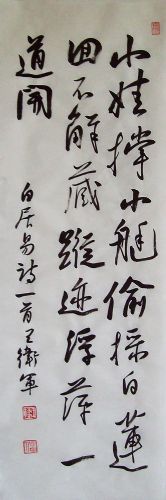 小娃撑小艇偷採白蓮
回不解藏蹤迹浮萍一
道開
白居易詩一首王衛軍